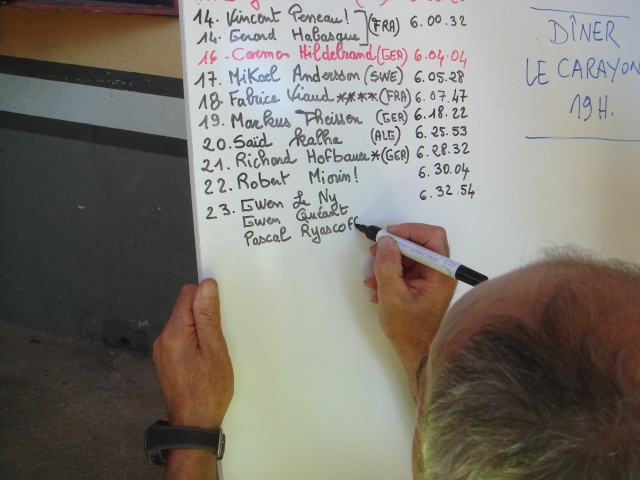 14. Vincent Peneau! (FRA) 6.00.32
14. Gerard Habasque
16. Carmen Hildebrand (GER) 6.04.04
17. MiKael Andersson (SWE) 6.05.28
18. Fabrice Viaud **** (FRA) 6.07.47
19. Markus Theissen (GER) 6.18.22
20. Saïd Kalha (ALG) 6.25.53
21. Richard Hofbauer * (GER) 6.28.32
22. Robert Miorin! 6.30.04
23. Gwen Le Ny 6.32.54
Gwen Quéant
Pascal Ryascoff
DÎNER
LE CARAYON
19H.